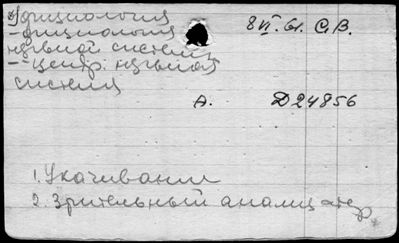 физиология
- физиология
нервной системы
- центр. нервная
система
8 VI. 61. С.В.
А. Д24856
1. Укачивание
2. Зрительный анализатор